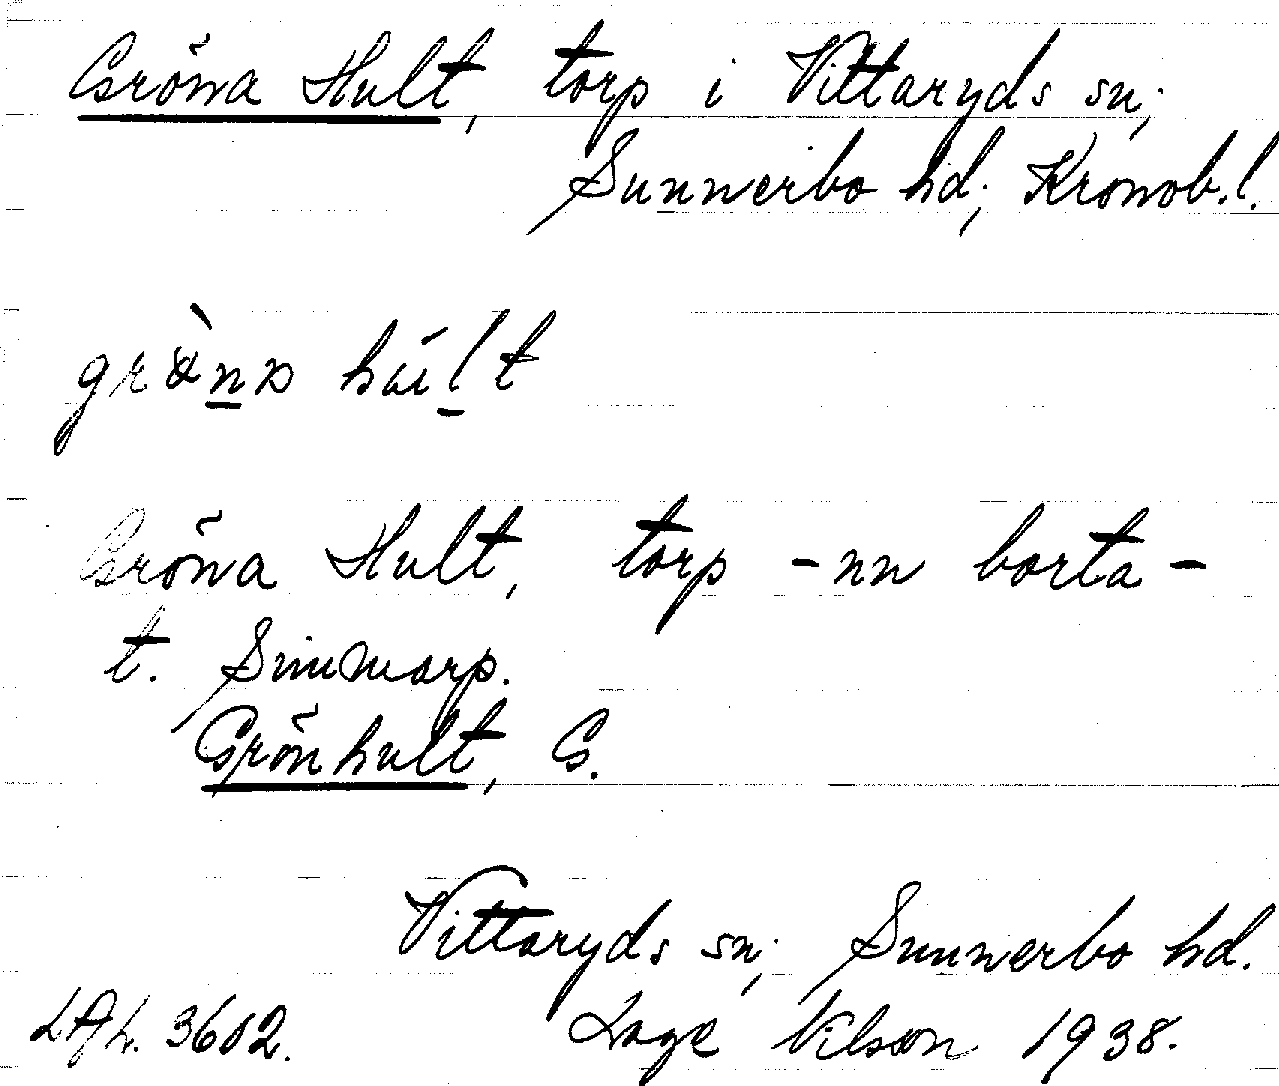 Gröna Hult, torp i Vittaryds sn;
Sunnerbo hd; Kronob.l.
Gröna Hult, torp - nu borta -
t. Simmarp.
Grönhult, G.
Vittaryds sn; Sunnerbo hd.
LAL. 3602. Lage Nilson 1938.